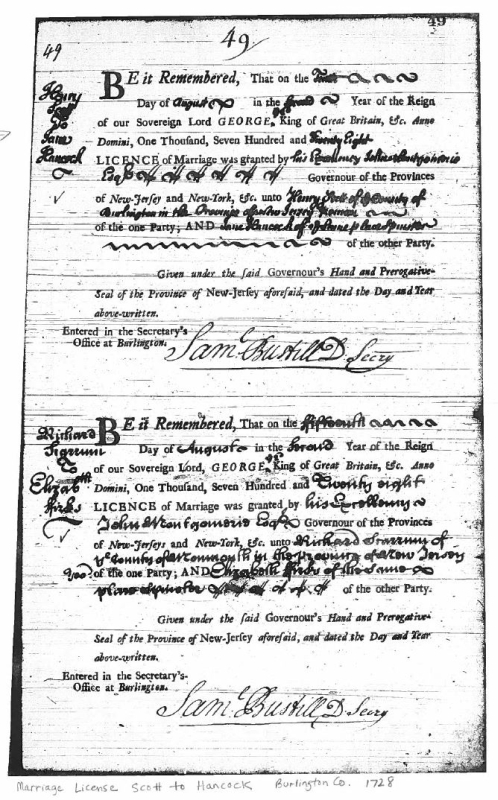 49
49
49
Henry
Scott
To
Jane
Hancock
BE it Remembered, That on the
Day of August in the Second Year of the Reign
of our Sovereign Lord GEORGE, 2d King of Great Britain, &c. Anno
Domini, One Thousand, Seven Hundred and Twenty Eight
LICENCE of Marriage was granted by his Excellency John Montgomerie
Esqr Governour of the Provinces
of New-Jersey and New-York, &c. unto Henry Scott of ye County of
Burlington in the Province of New Jersey Yeoman
of the one Party; AND Jane Hancock of ye same place Spinster
of the other Party.
Given under the said Governour's Hand and Prerogative-
Seal of the Province of New-Jersey aforesaid, and dated the Day and Year
above-written.
Entered in the Secretary's
Office at Burlington.
Saml Bustill D Secry
Richard
To
Elizabth
BE it Remembered, That on the fifteenth
Day of August in the Second Year of the Reign
of our Sovereign Lord, GEORGE, 2d King of Great Britain, &c. Anno
Domini, One Thousand, Seven Hundred and Twenty eight
LICENCE of Marriage was granted by his Excellency
John Montgomerie Esqr Governour of the Provinces
of New-Jerseys and New-York, &c. unto Richard
ye County of Monmouth in the Province of New Jersey
Yeo: of the one Party; AND Elizabeth of the same
place Spinster of the other Party.
Given under the said Governour's Hand and Prerogative-
Seal of the Province of New-Jersey aforesaid, and dated the Day and Year
above-written.
Entered in the Secretary's-
Office at Burlington.
Saml Bustill D Secry
Marriage License Scott to Hancock Burlington Co. 1728